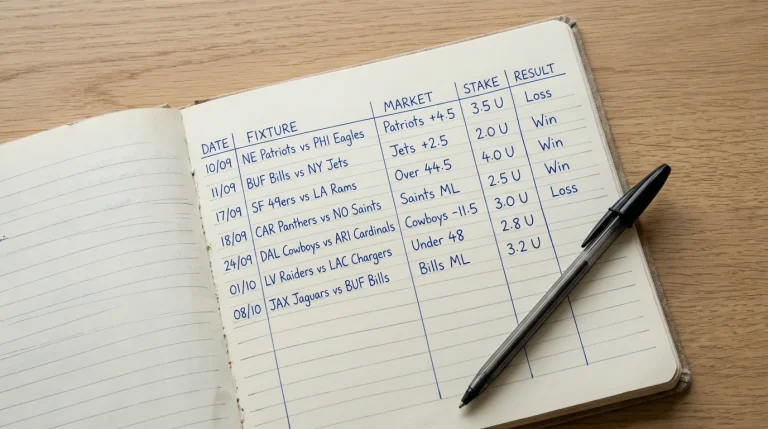 DATE FIXTURE MARKET STAKE RESULT
10/09 NE Patriots vs PHI Eagles Patriots +4.5 3.5 U Loss
11/09 BUF Bills vs NY Jets Jets +2.5 2.0 U Win
17/09 SF 49ers vs LA Rams Over 44.5 4.0 U Win
18/09 CAR Panthers vs NO Saints Saints ML 2.5 U Win
24/09 DAL Cowboys vs ARI Cardinals Cowboys -11.5 3.0 U Loss
01/10 LV Raiders vs LAC Chargers Under 48 2.8 U
08/10 JAX Jaguars vs BUF Bills Bills ML 3.2 U